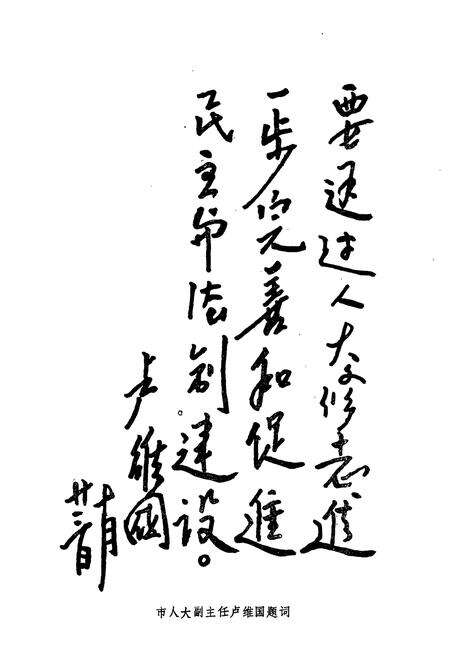 要通过人大修志進
一步完善和促進
民主法制建设。
卢維國
市人大副主任卢维国题词